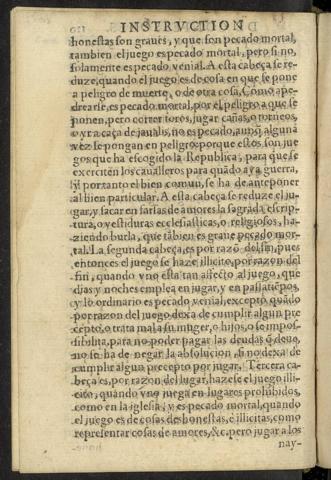 INSTRVCTION
honestas son graues, y que son pecado mortal,
tambien el juego es pecado mortal, pero si no,
solamente es pecado venial. A esta cabeça se re-
duze, quando el juego es de cosa en que se pone
a peligro de muerte, o de otra cosa. Como ape-
drearse, es pecado mortal, por el peligro a que se
ponen, pero correr toros, jugar cañas, o torneos,
o yr a caça de jaualis, no es pecado, aunq̃ alguna
vez se pongan en peligro: porque estos son jue
gos que ha escogido la Republica, para que se
exerciten los caualleros para quãdo aya guerra,
y portanto el bien comun, se ha de anteponer
al bien particular. A esta cabeça se reduze el ju-
gar, y sacar en farsas de amores la sagrada escrip-
tura, o vestiduras ecclesiasticas, o religiosos, ha-
ziendo burla, que tãbien es graue pecado mor-
tal. La segunda cabeça, es por razõ del fin, pues
entonces el juego se haze illicito, por razon del
fin, quando vno esta tan affecto al juego, que
dias y noches emplea en jugar, y en passatiẽpos,
y lo ordinario es pecado venial, excepto quãdo
por razon del juego dexa de cumplir algun pre
cepto, o trata mal a su muger, o hijos, o se impos-
sibilita, para no poder pagar las deudas q̃ deue,
no se ha de negar la absolucion, si no dexa de
cumplir algun precepto por jugar. Tercera ca-
beça es, por razon del lugar, hazese el juego illi-
cito, quando vno juega en lugares prohibidos,
como en la iglesia, y es pecado mortal, quando
el juego es de cosas deshonestas, e illicitas, como
representar cosas de amores, &c. pero jugar a los
nay-